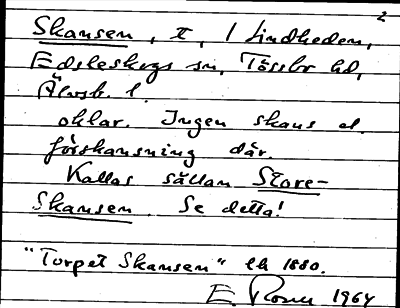 2
Skansen, t, i Lindheden,
Edsleskogs sn, Tössbo hd,
Älvsb. l.
oklar. Ingen skans el.
förskansning där.
Kallas sällan Store-
Skansen. Se detta!
"Torpet Skansen" lk 1880.
E. Rosell 1964